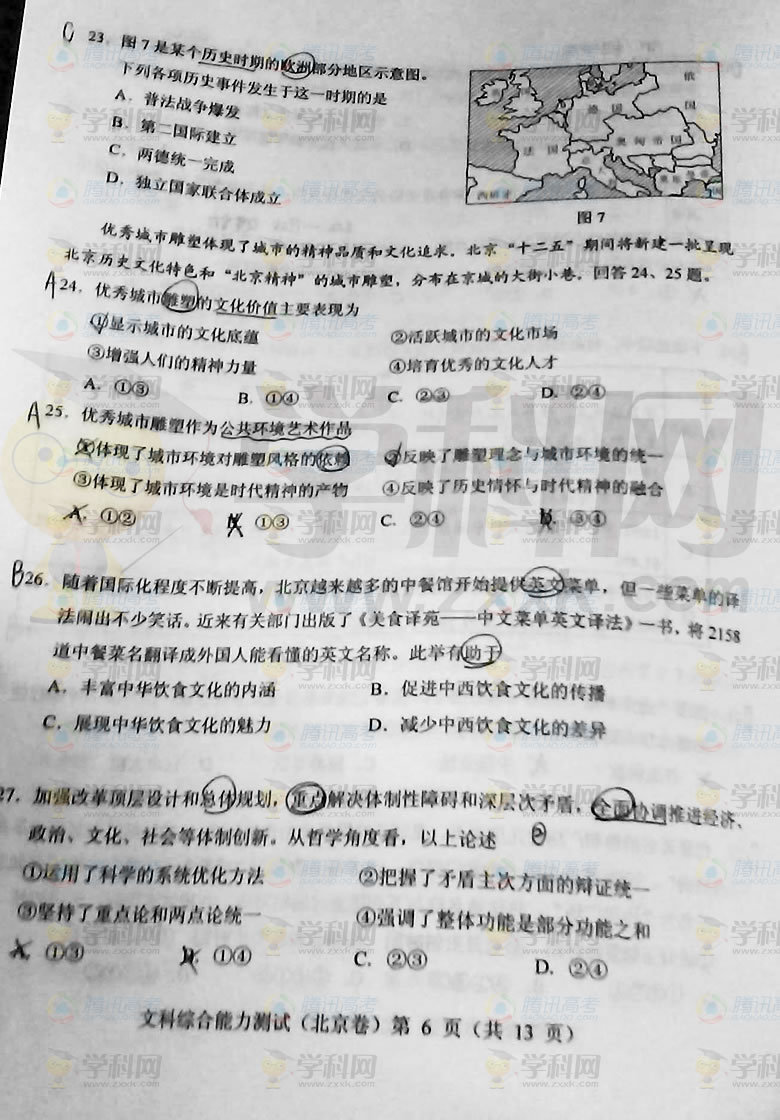 C 23. 图7是某个历史时期的欧洲部分地区示意图。
下列各项历史事件发生于这一时期的是
A. 普法战争爆发
B. 第二国际建立
C. 两德统一完成
D. 独立国家联合体成立
俄
国
德 国
法 国
奥 匈 帝 国
意
西班牙
图7
优秀城市雕塑体现了城市的精神品质和文化追求。北京“十二五”期间将新建一批呈现
北京历史文化特色和“北京精神”的城市雕塑，分布在京城的大街小巷。回答24、25题。
A 24. 优秀城市雕塑的文化价值主要表现为
①显示城市的文化底蕴 ②活跃城市的文化市场
③增强人们的精神力量 ④培育优秀的文化人才
A. ①③ B. ①④ C. ②③ D. ②④
A 25. 优秀城市雕塑作为公共环境艺术作品
①体现了城市环境对雕塑风格的依赖 ②反映了雕塑理念与城市环境的统一
③体现了城市环境是时代精神的产物 ④反映了历史情怀与时代精神的融合
A. ①② B. ①③ C. ②④ D. ③④
B 26. 随着国际化程度不断提高，北京越来越多的中餐馆开始提供英文菜单，但一些菜单的译
法闹出不少笑话。近来有关部门出版了《美食译苑——中文菜单英文译法》一书，将2158
道中餐菜名翻译成外国人能看懂的英文名称。此举有助于
A. 丰富中华饮食文化的内涵 B. 促进中西饮食文化的传播
C. 展现中华饮食文化的魅力 D. 减少中西饮食文化的差异
27. 加强改革顶层设计和总体规划，重点解决体制性障碍和深层次矛盾，全面协调推进经济、
政治、文化、社会等体制创新。从哲学角度看，以上论述
①运用了科学的系统优化方法 ②把握了矛盾主次方面的辩证统一
③坚持了重点论和两点论统一 ④强调了整体功能是部分功能之和
A. ①③ B. ①④ C. ②③ D. ②④
文科综合能力测试（北京卷）第 6 页（共 13 页）
学科网
www.zxxk.com
腾讯高考
GAOKAO.QQ.COM